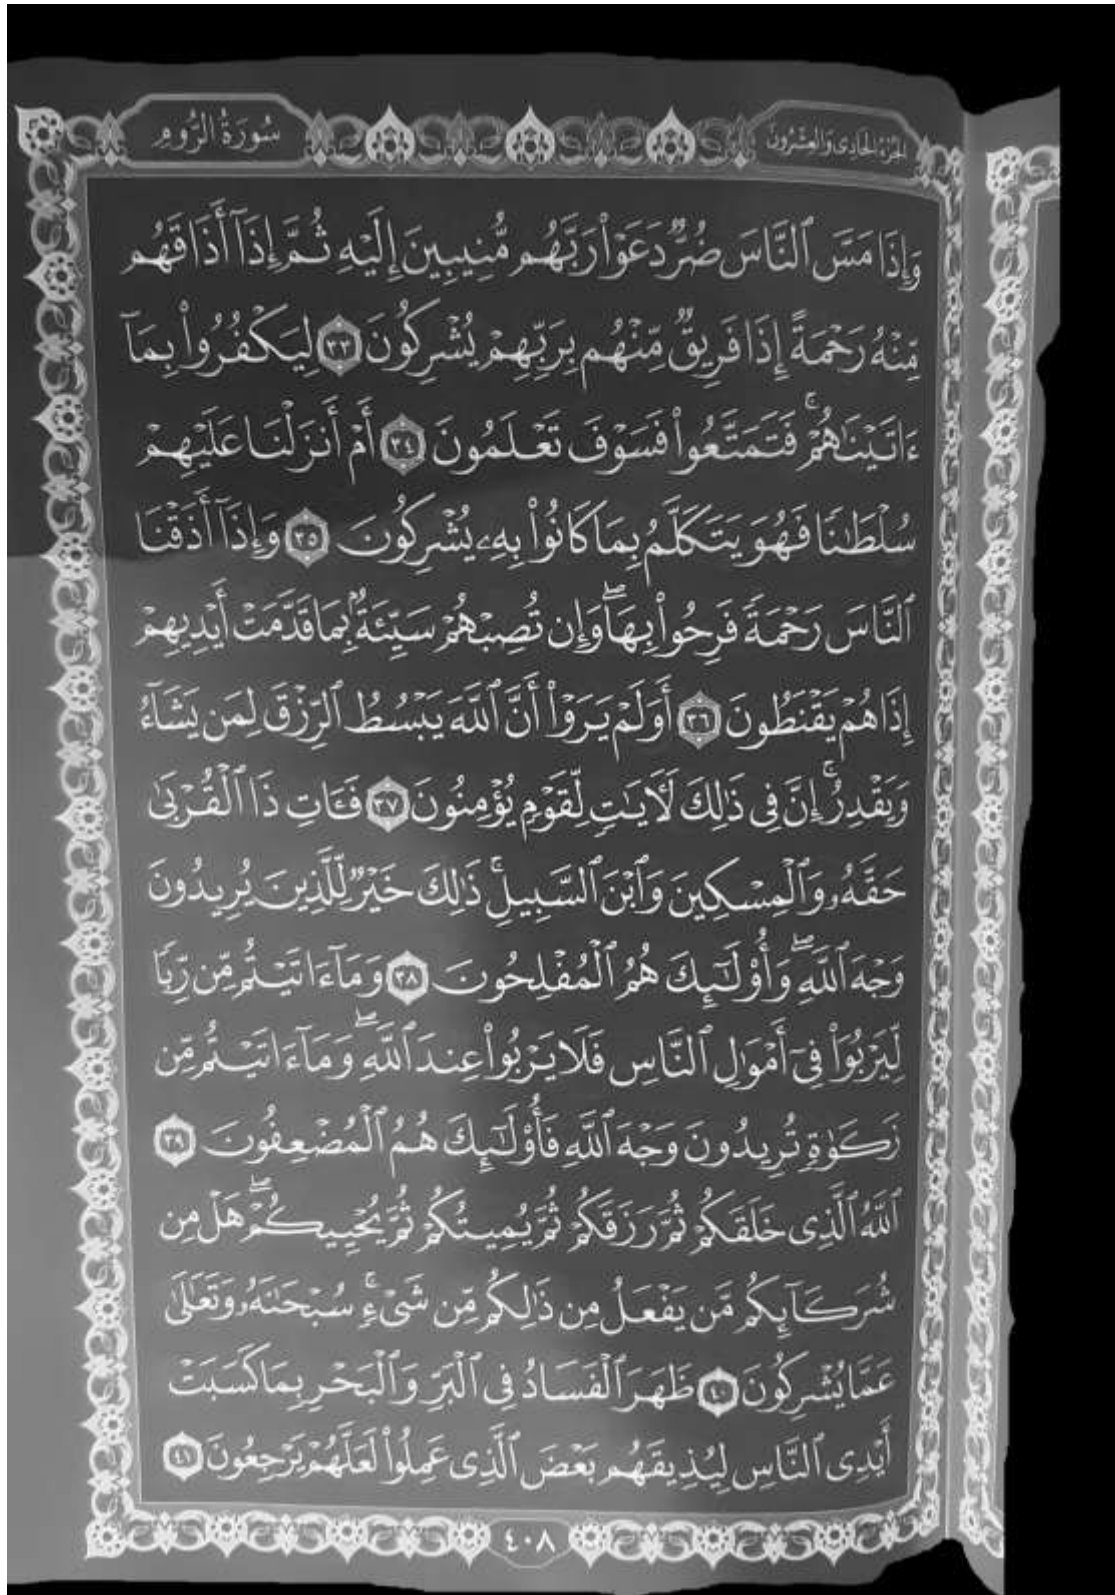 الجزء الحادي والعشرون
سُورَةُ الرُّومِ
وَإِذَا مَسَّ ٱلنَّاسَ ضُرٌّ دَعَوْا۟ رَبَّهُم مُّنِيبِينَ إِلَيْهِ ثُمَّ إِذَآ أَذَاقَهُم
مِّنْهُ رَحْمَةً إِذَا فَرِيقٌ مِّنْهُم بِرَبِّهِمْ يُشْرِكُونَ ٣٣ لِيَكْفُرُوا۟ بِمَآ
ءَاتَيْنَٰهُمْ ۚ فَتَمَتَّعُوا۟ فَسَوْفَ تَعْلَمُونَ ٣٤ أَمْ أَنزَلْنَا عَلَيْهِمْ
سُلْطَٰنًا فَهُوَ يَتَكَلَّمُ بِمَا كَانُوا۟ بِهِۦ يُشْرِكُونَ ٣٥ وَإِذَآ أَذَقْنَا
ٱلنَّاسَ رَحْمَةً فَرِحُوا۟ بِهَا ۖ وَإِن تُصِبْهُمْ سَيِّئَةٌۢ بِمَا قَدَّمَتْ أَيْدِيهِمْ
إِذَا هُمْ يَقْنَطُونَ ٣٦ أَوَلَمْ يَرَوْا۟ أَنَّ ٱللَّهَ يَبْسُطُ ٱلرِّزْقَ لِمَن يَشَآءُ
وَيَقْدِرُ ۚ إِنَّ فِى ذَٰلِكَ لَءَايَٰتٍ لِّقَوْمٍ يُؤْمِنُونَ ٣٧ فَـَٔاتِ ذَا ٱلْقُرْبَىٰ
حَقَّهُۥ وَٱلْمِسْكِينَ وَٱبْنَ ٱلسَّبِيلِ ۚ ذَٰلِكَ خَيْرٌ لِّلَّذِينَ يُرِيدُونَ
وَجْهَ ٱللَّهِ ۖ وَأُو۟لَٰٓئِكَ هُمُ ٱلْمُفْلِحُونَ ٣٨ وَمَآ ءَاتَيْتُم مِّن رِّبًا
لِّيَرْبُوَا۟ فِىٓ أَمْوَٰلِ ٱلنَّاسِ فَلَا يَرْبُوا۟ عِندَ ٱللَّهِ ۖ وَمَآ ءَاتَيْتُم مِّن
زَكَوٰةٍ تُرِيدُونَ وَجْهَ ٱللَّهِ فَأُو۟لَٰٓئِكَ هُمُ ٱلْمُضْعِفُونَ ٣٩
ٱللَّهُ ٱلَّذِى خَلَقَكُمْ ثُمَّ رَزَقَكُمْ ثُمَّ يُمِيتُكُمْ ثُمَّ يُحْيِيكُمْ ۖ هَلْ مِن
شُرَكَآئِكُم مَّن يَفْعَلُ مِن ذَٰلِكُم مِّن شَىْءٍ ۚ سُبْحَٰنَهُۥ وَتَعَٰلَىٰ
عَمَّا يُشْرِكُونَ ٤٠ ظَهَرَ ٱلْفَسَادُ فِى ٱلْبَرِّ وَٱلْبَحْرِ بِمَا كَسَبَتْ
أَيْدِى ٱلنَّاسِ لِيُذِيقَهُم بَعْضَ ٱلَّذِى عَمِلُوا۟ لَعَلَّهُمْ يَرْجِعُونَ ٤١
٤٠٨